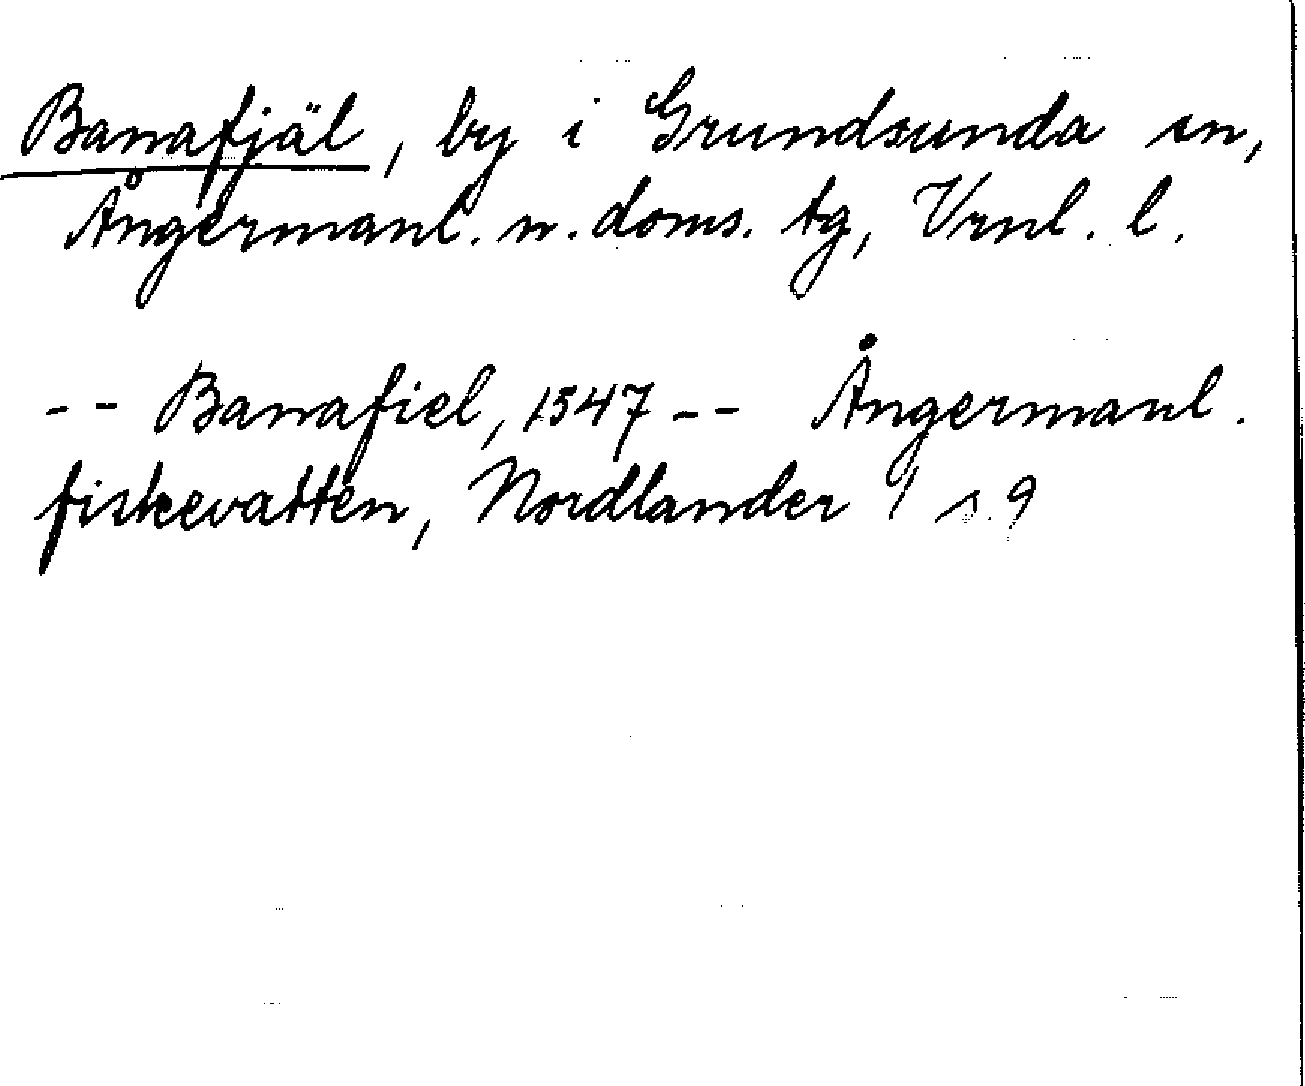 Banafjäl, by i Grundsunda sn,
Ångermanl. n. doms. tg, Vrnl. l.
-- Banafiel, 1547 -- Ångermanl.
fiskevatten, Nordlander s. 9